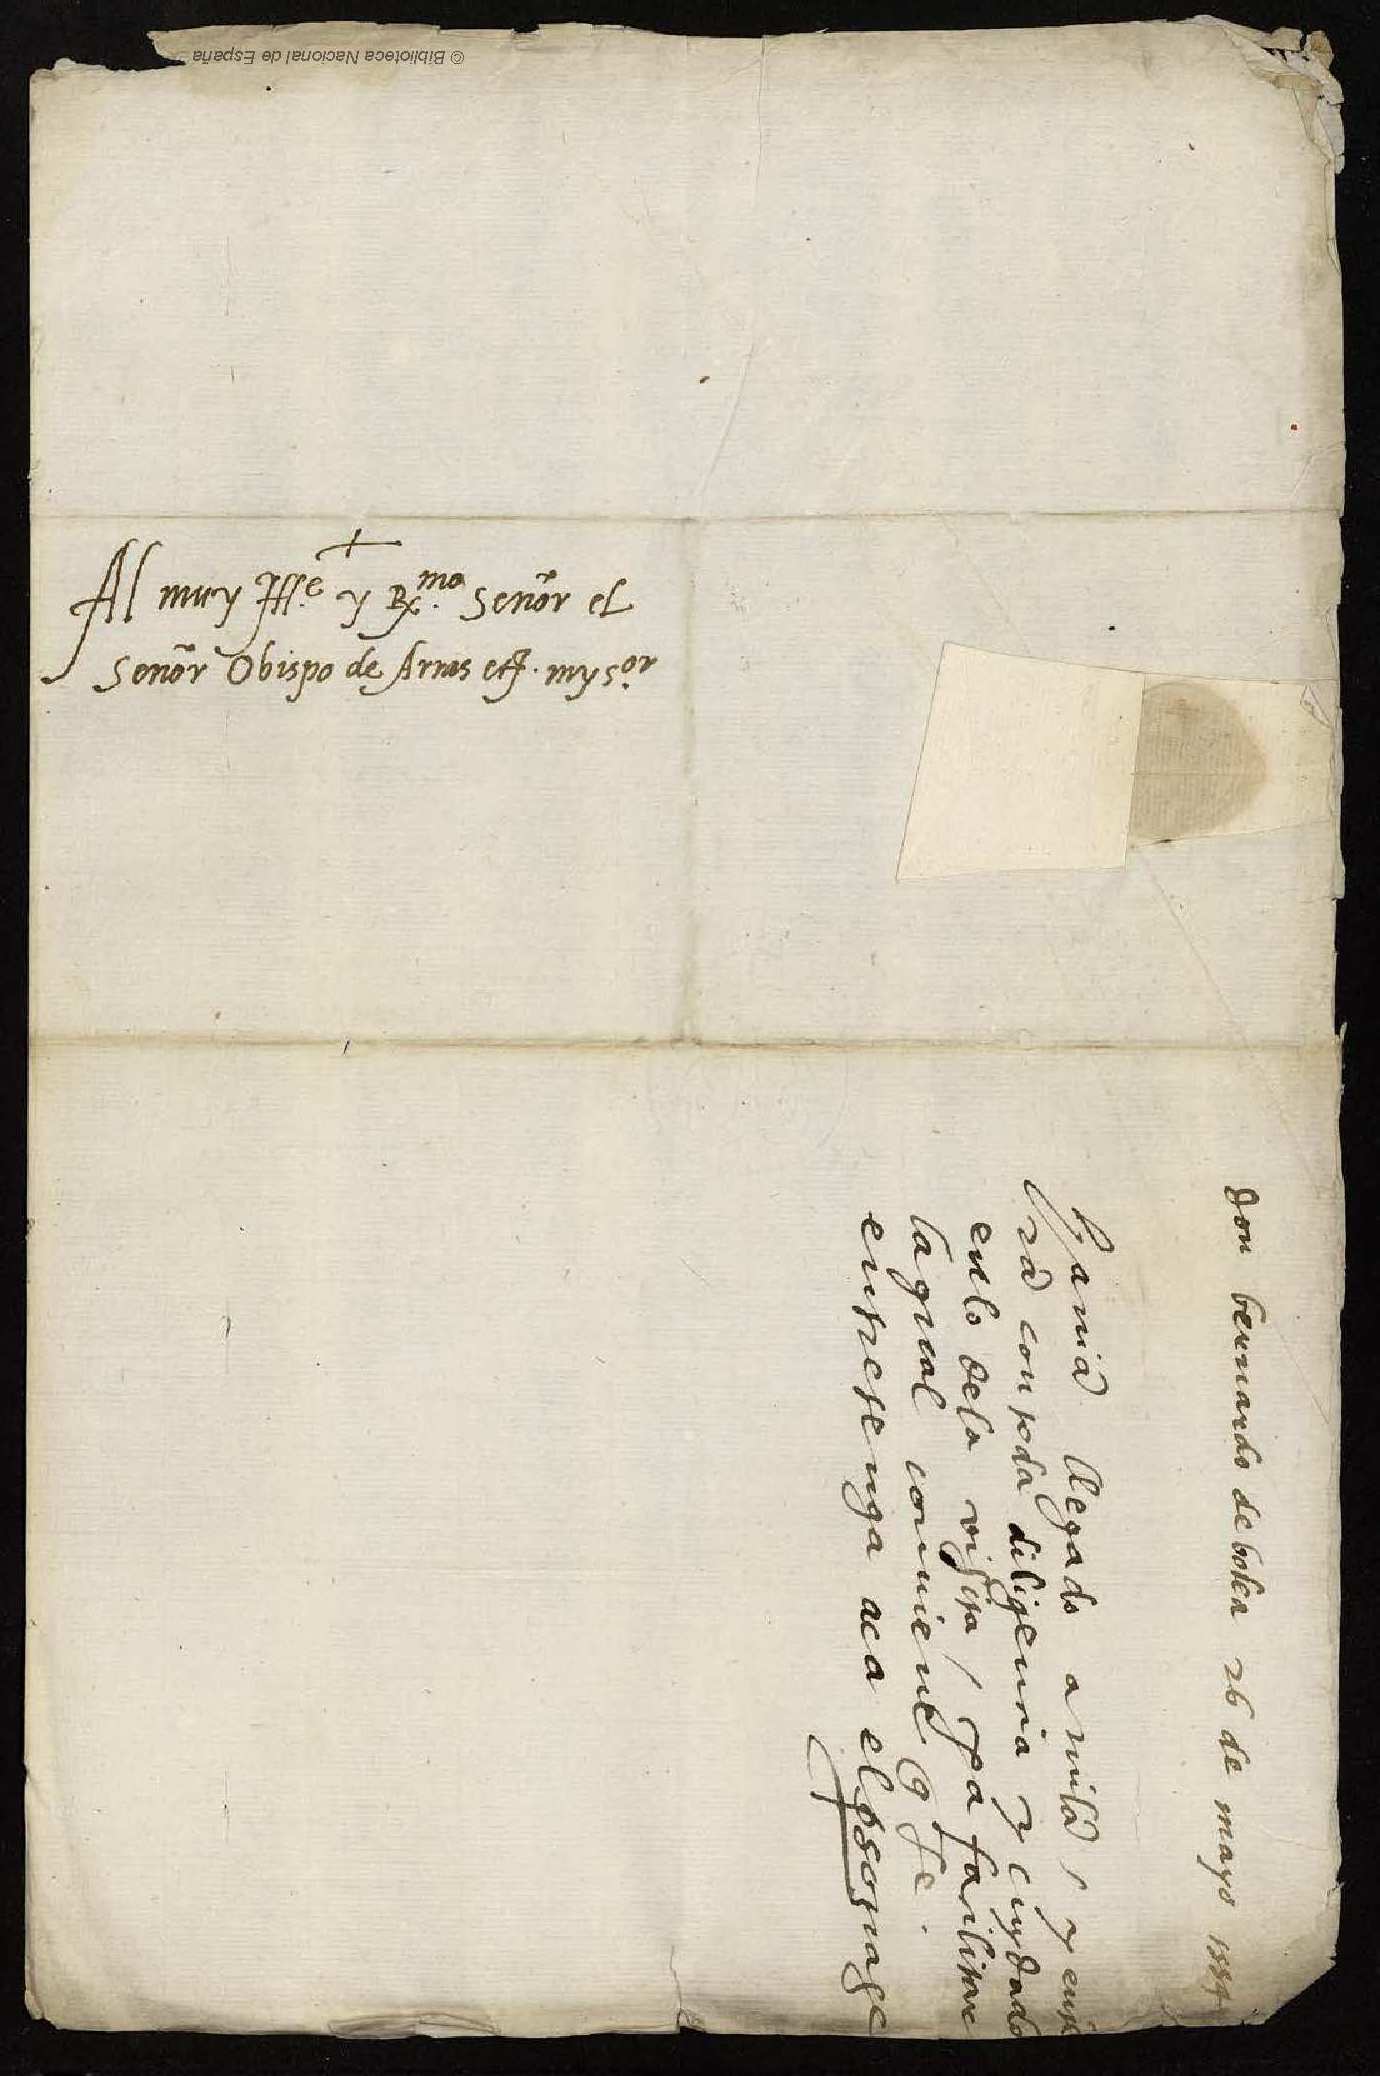 © Biblioteca Nacional de España
Al muy Ill.e y Rx.mo señor el
señor Obispo de Arras etc. my s.or
don bernardo de bolea 26 de mayo 1554
llegado a milā / y
con toda diligencia y cuydado
en lo de la visita / pa
la qual conviene q se
entretenga aca el